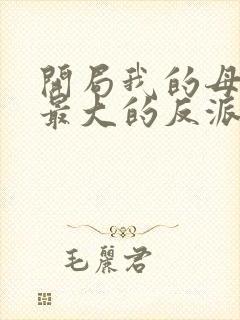 開局我的母
最大的反派
毛麗君